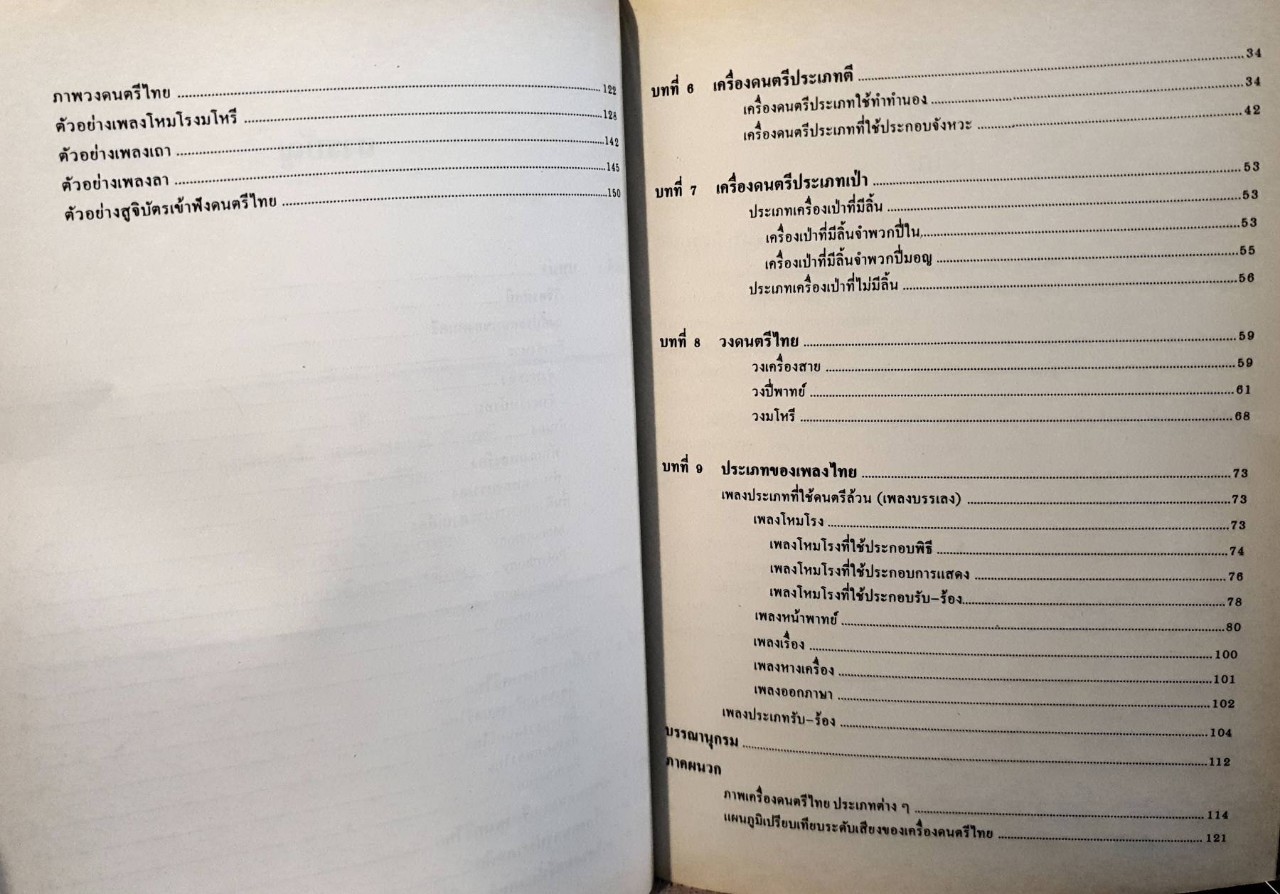 ภาพวงดนตรีไทย ........ 122
ตัวอย่างเพลงโหมโรงมโหรี ........ 128
ตัวอย่างเพลงเถา ........ 142
ตัวอย่างเพลงลา ........ 145
ตัวอย่างสูจิบัตรเข้าฟังดนตรีไทย ........ 150
บทที่ 6 เครื่องดนตรีประเภทตี ........ 34
เครื่องดนตรีประเภทใช้ทำทำนอง ........ 34
เครื่องดนตรีประเภทที่ใช้ประกอบจังหวะ ........ 42
บทที่ 7 เครื่องดนตรีประเภทเป่า ........ 53
ประเภทเครื่องเป่าที่มีลิ้น ........ 53
เครื่องเป่าที่มีลิ้นจำพวกปี่ใน ........ 53
เครื่องเป่าที่มีลิ้นจำพวกปี่มอญ ........ 55
ประเภทเครื่องเป่าที่ไม่มีลิ้น ........ 56
บทที่ 8 วงดนตรีไทย ........ 59
วงเครื่องสาย ........ 59
วงปี่พาทย์ ........ 61
วงมโหรี ........ 68
บทที่ 9 ประเภทของเพลงไทย ........ 73
เพลงประเภทที่ใช้ดนตรีล้วน (เพลงบรรเลง) ........ 73
เพลงโหมโรง ........ 73
เพลงโหมโรงที่ใช้ประกอบพิธี ........ 74
เพลงโหมโรงที่ใช้ประกอบการแสดง ........ 76
เพลงโหมโรงที่ใช้ประกอบรับ-ร้อง ........ 78
เพลงหน้าพาทย์ ........ 80
เพลงเรื่อง ........ 100
เพลงหางเครื่อง ........ 101
เพลงออกภาษา ........ 102
เพลงประเภทรับ-ร้อง ........ 104
บรรณานุกรม ........ 112
ภาคผนวก
ภาพเครื่องดนตรีไทย ประเภทต่าง ๆ ........ 114
แผนภูมิเปรียบเทียบระดับเสียงของเครื่องดนตรีไทย ........ 121